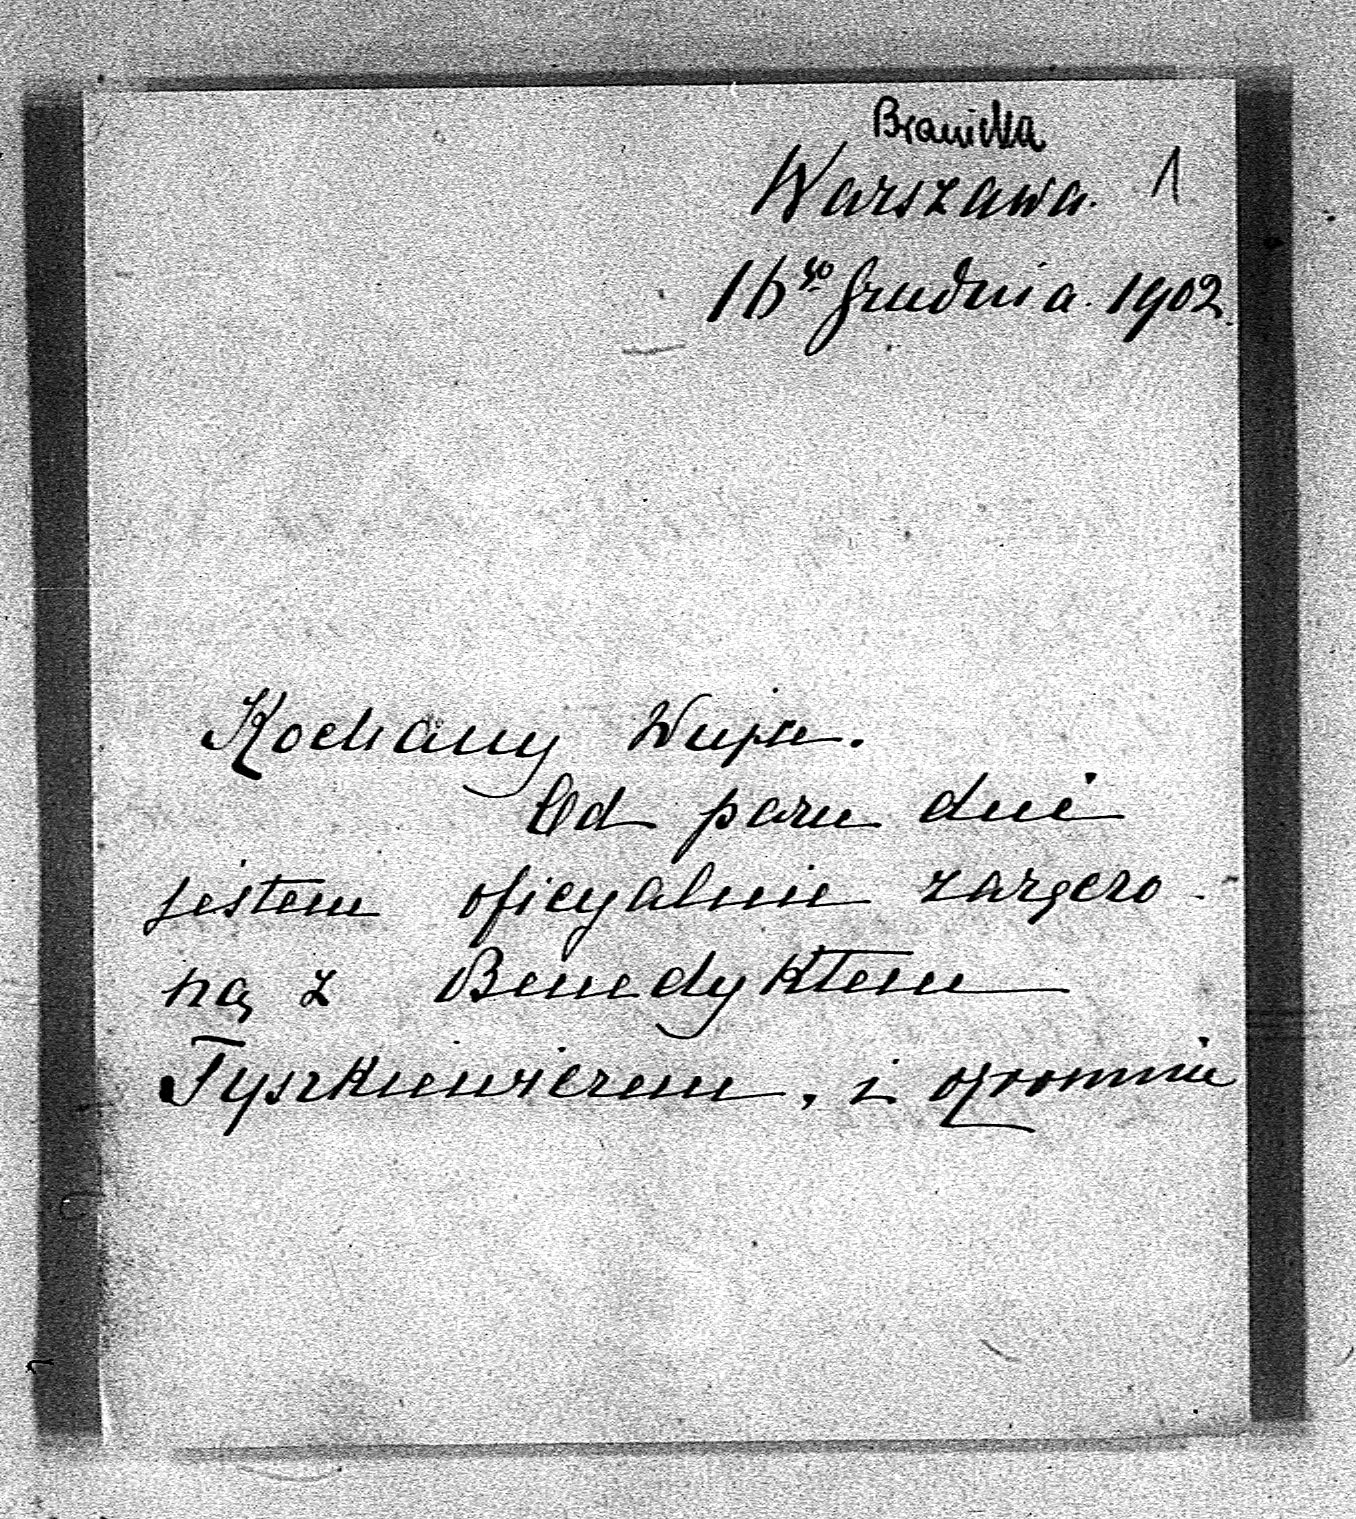 Branicka
Warszawa. 1
16go Grudnia. 1902.
Kochany Wuju.
Od paru dni
jestem oficyalnie zaręczo-
ną z Benedyktem
Tyszkiewiczem, i ogromnie